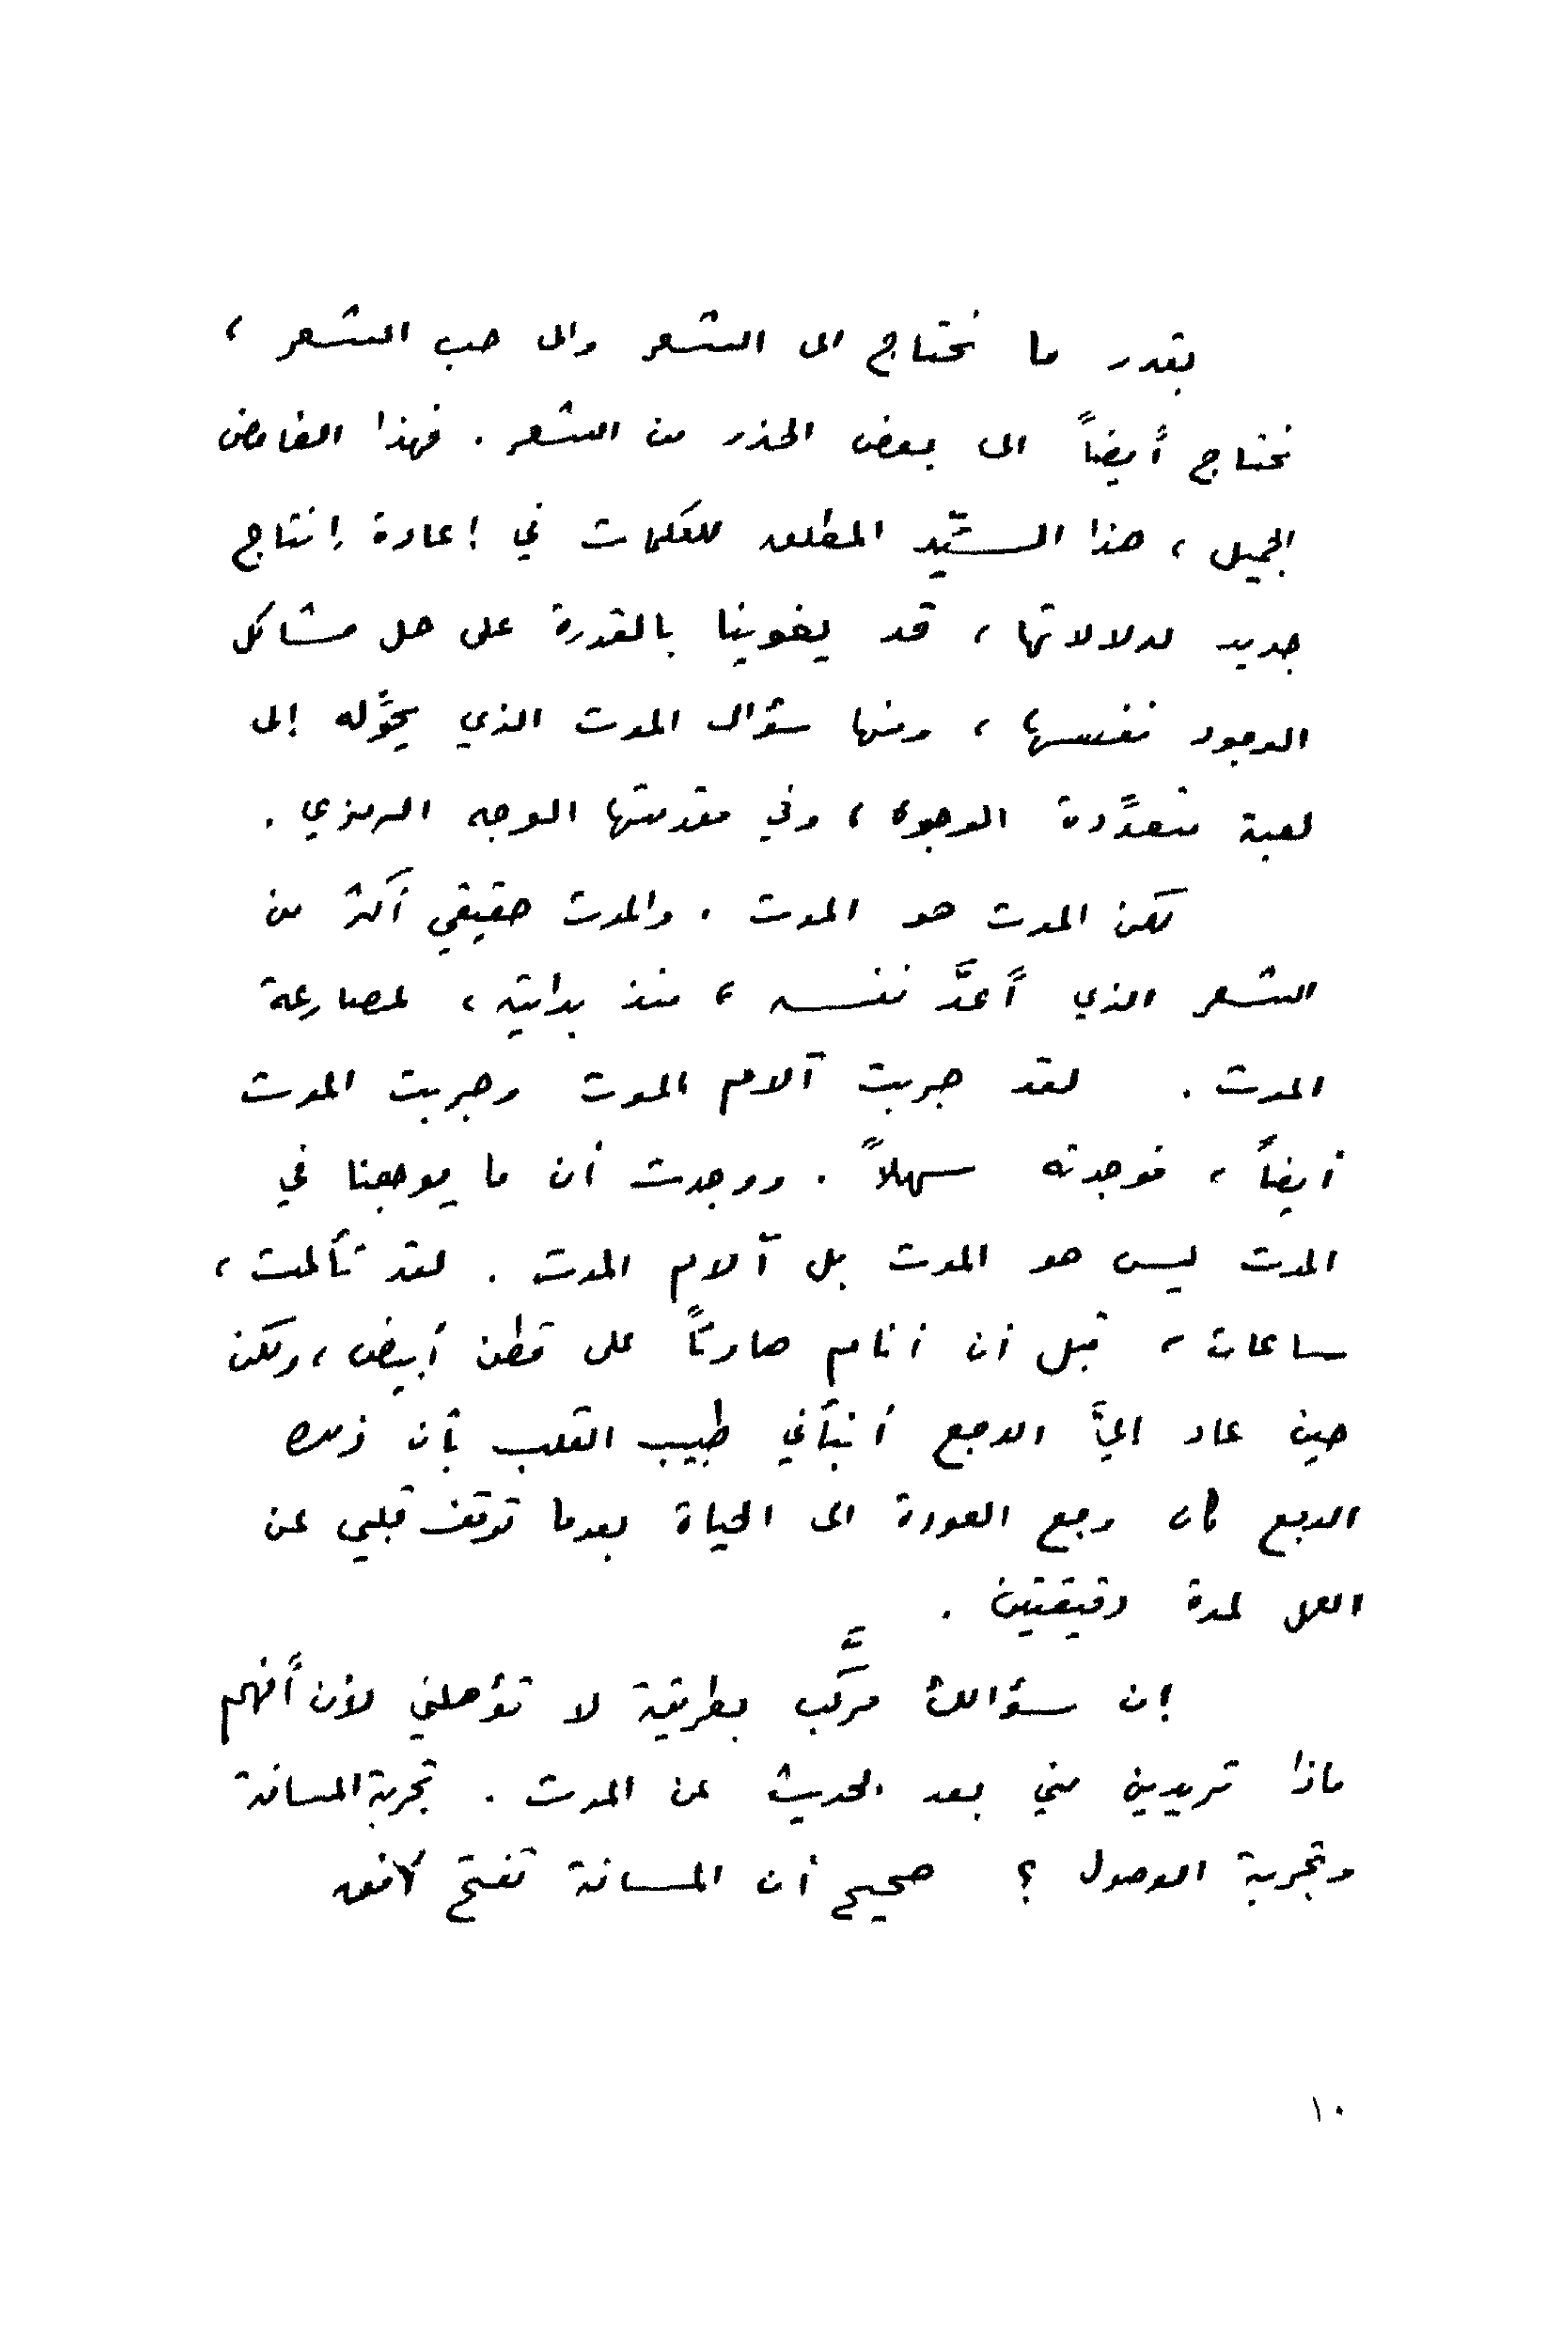 بقدر ما نحتاج الى الشعر والى حب الشعر ،
نحتاج أيضاً الى بعض الحذر من الشعر . فهذا الغامض
الجميل ، هذا السيّد المطلق للكلمات في إعادة إنتاج
جديد لدلالاتها ، قد يغوينا بالقدرة على حل مشاكل
الوجود نفسها ، ومنها سؤال الموت الذي يحوِّله إلى
لعبة متعدِّدة الوجوه ، وفي مقدمتها الوجه الرمزي .
لكن الموت هو الموت . والموت حقيقي أكثر من
الشعر الذي أَعدَّ نفسه ، منذ بدايته ، لمصارعة
الموت . لقد جربت آلام الموت وجربت الموت
أيضاً ، فوجدته سهلاً . ووجدت أن ما يوجعنا في
الموت ليس هو الموت بل آلام الموت . لقد تألمت ،
ساعات ، قبل أن أنام على قطن أبيض ، ولكن
حين عاد اليَّ الوجع أنبأني طبيب القلب بأن ذلك
الوجع كان وجع العودة الى الحياة بعدما توقف قلبي عن
العمل لمدة دقيقتين .
إن سؤالك مركَّب بطريقة لا تؤهلني لأن أَفهم
ماذا تريدين مني بعد الحديث عن الموت . تجربة المسافة
وتجربة الوصول ؟ صحيح أن المسافة تفتح لأفق
١٠